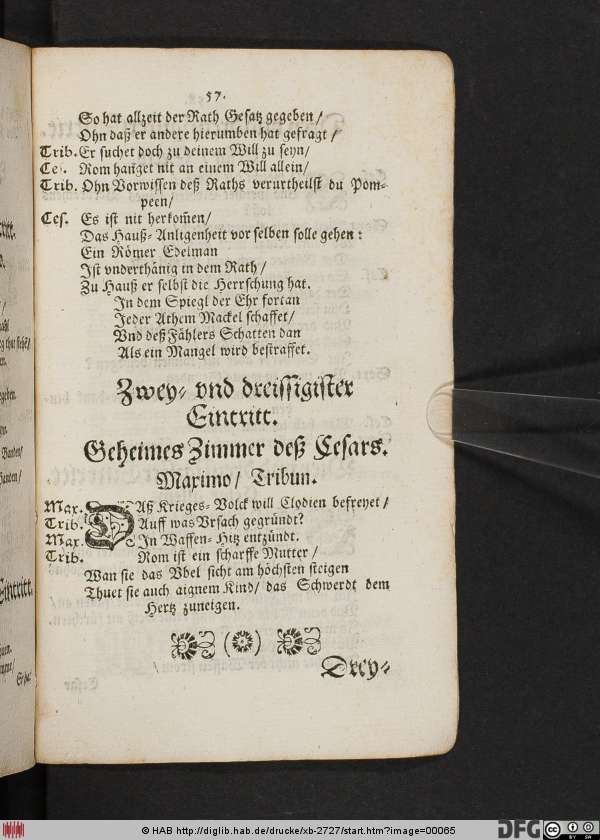 57.
So hat allzeit der Rath Gesatz gegeben /
Ohn daß er andere hierumben hat gefragt /
Trib. Er suchet doch zu deinem Will zu seyn /
Ces. Rom hanget nit an einem Will allein /
Trib. Ohn Vorwissen deß Raths verurtheilst du Pom-
peen /
Ces. Es ist nit herkom̃en /
Das Hauß-Anligenheit vor selben solle gehen :
Ein Römer Edelman
Ist vnderthänig in dem Rath /
Zu Hauß er selbst die Herrschung hat.
In dem Spiegl der Ehr fortan
Jeder Athem Mackel schaffet /
Vnd deß Fählers Schatten dan
Als ein Mangel wird bestraffet.
Zwey- vnd dreissigister
Eintritt.
Geheimes Zimmer deß Cesars.
Maximo / Tribun.
Max. Daß Krieges-Volck will Clodien befreyet /
Trib. Auff was Vrsach gegründt?
Max. In Waffen-Hitz entzündt.
Trib. Rom ist ein scharffe Mutter /
Wan sie das Vbel sicht am höchsten steigen
Thuet sie auch aignem Kind / das Schwerdt dem
Hertz zuneigen.
Drey-
© HAB http://diglib.hab.de/drucke/xb-2727/start.htm?image=00065
DFG
CC BY SA